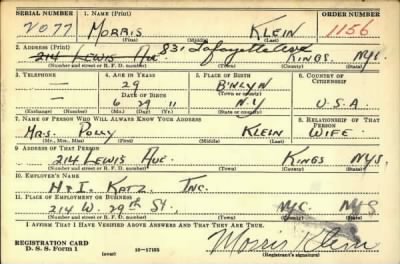 SERIAL NUMBER 1. NAME (Print) ORDER NUMBER
2077 MORRIS KLEIN 1156
(First) (Middle) (Last)
2. ADDRESS (Print) 831 Lafayette Ave
214 LEWIS AVE. KINGS NYC.
(Number and street or R. F. D. number) (Town) (County) (State)
3. TELEPHONE 4. AGE IN YEARS 5. PLACE OF BIRTH 6. COUNTRY OF CITIZENSHIP
— 29 B'KLYN
DATE OF BIRTH (Town or county)
— 6 29 11 N.Y U.S.A.
(Exchange) (Number) (Mo.) (Day) (Yr.) (State or country)
7. NAME OF PERSON WHO WILL ALWAYS KNOW YOUR ADDRESS 8. RELATIONSHIP OF THAT PERSON
MRS. POLLY KLEIN WIFE
(Mr., Mrs., Miss) (First) (Middle) (Last)
9. ADDRESS OF THAT PERSON
214 LEWIS AVE. KINGS NYS.
(Number and street or R. F. D. number) (Town) (County) (State)
10. EMPLOYER'S NAME
H & I. KATZ INC.
11. PLACE OF EMPLOYMENT OR BUSINESS
214 W. 29th St. NYC. NYS
(Number and street or R. F. D. number) (Town) (County) (State)
I AFFIRM THAT I HAVE VERIFIED ABOVE ANSWERS AND THAT THEY ARE TRUE.
REGISTRATION CARD
D. S. S. Form 1 (over) 16—17105 Morris Klein
(Registrant's signature)